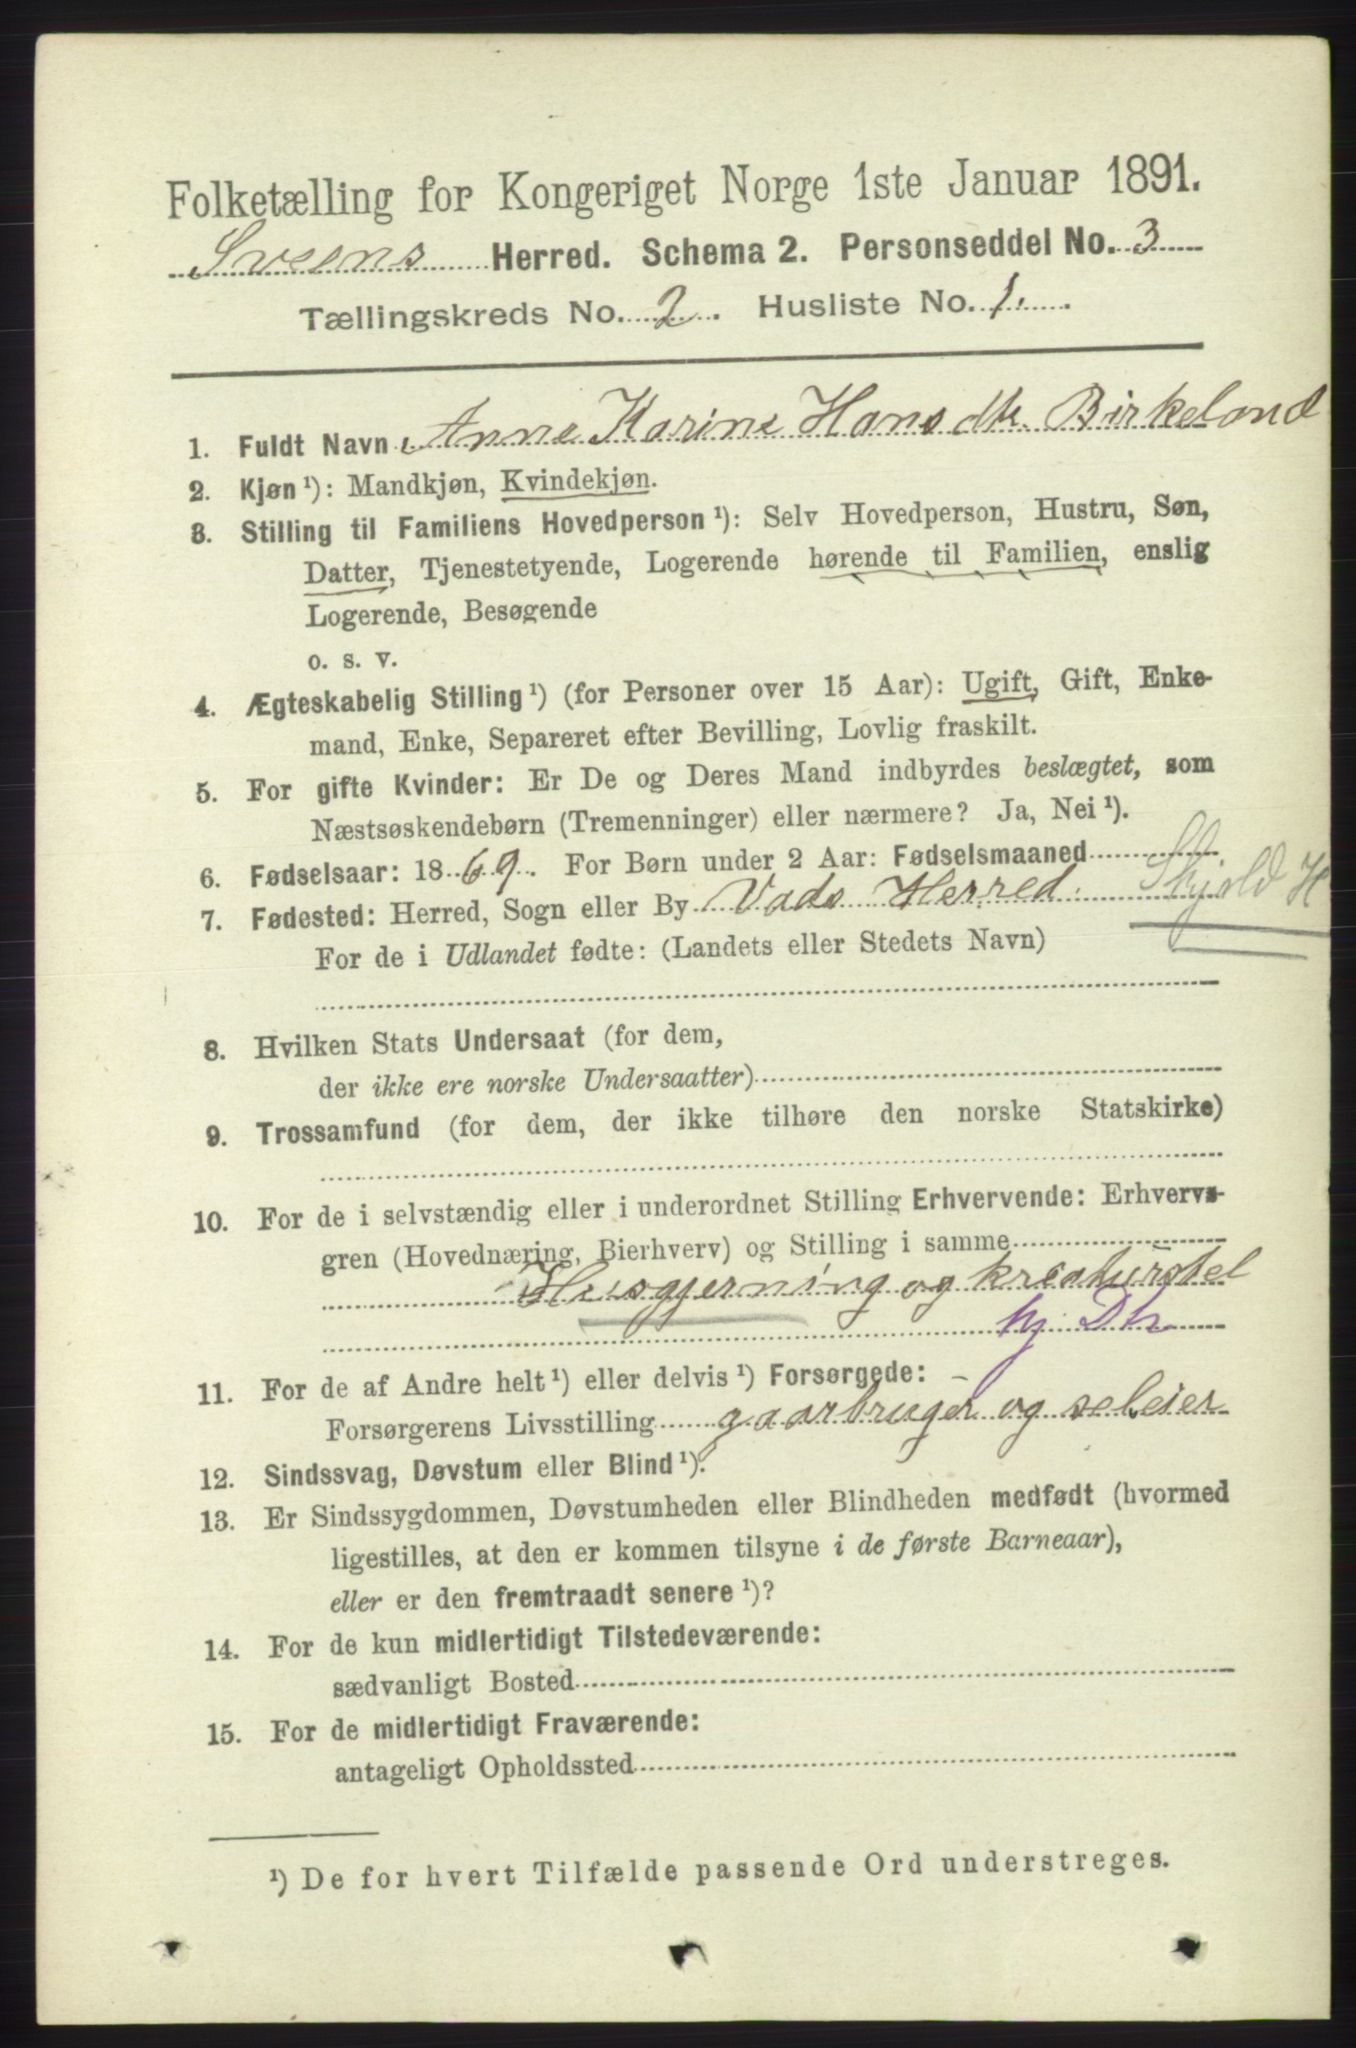 Folketælling for Kongeriget Norge 1ste Januar 1891.
Sveens Herred. Schema 2. Personseddel No. 3
Tællingskreds No. 2. Husliste No. 1.
1. Fuldt Navn Anne Karine Hansdtr. Birkeland
2. Kjøn ¹): Mandkjøn, Kvindekjøn.
3. Stilling til Familiens Hovedperson ¹): Selv Hovedperson, Hustru, Søn,
Datter, Tjenestetyende, Logerende hørende til Familien, enslig
Logerende, Besøgende
o. s. v.
4. Ægteskabelig Stilling ¹) (for Personer over 15 Aar): Ugift, Gift, Enke-
mand, Enke, Separeret efter Bevilling, Lovlig fraskilt.
5. For gifte Kvinder: Er De og Deres Mand indbyrdes beslægtet, som
Næstsøskendebørn (Tremenninger) eller nærmere? Ja, Nei ¹).
6. Fødselsaar: 1869. For Børn under 2 Aar: Fødselsmaaned
7. Fødested: Herred, Sogn eller By Vads Herred. Skjold H
For de i Udlandet fødte: (Landets eller Stedets Navn)
8. Hvilken Stats Undersaat (for dem,
der ikke ere norske Undersaatter)
9. Trossamfund (for dem, der ikke tilhøre den norske Statskirke)
10. For de i selvstændig eller i underordnet Stilling Erhvervende: Erhvervs-
gren (Hovednæring, Bierhverv) og Stilling i samme
Husgjerning og kreaturstel
hj Dtr
11. For de af Andre helt ¹) eller delvis ¹) Forsørgede:
Forsørgerens Livsstilling gaarbruger og seleier
12. Sindssvag, Døvstum eller Blind ¹).
13. Er Sindssygdommen, Døvstumheden eller Blindheden medfødt (hvormed
ligestilles, at den er kommen tilsyne i de første Barneaar),
eller er den fremtraadt senere ¹)?
14. For de kun midlertidigt Tilstedeværende:
sædvanligt Bosted
15. For de midlertidigt Fraværende:
antageligt Opholdssted
¹) De for hvert Tilfælde passende Ord understreges.